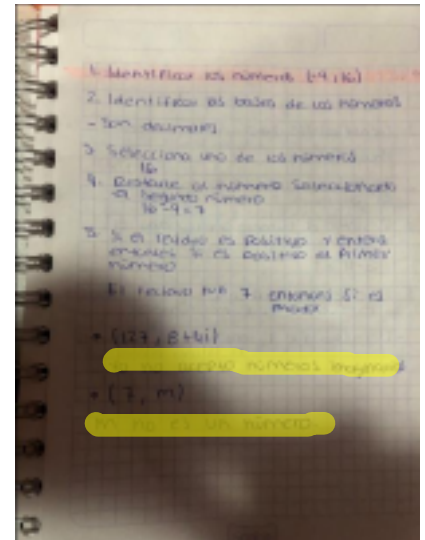 1. Identificar los números (-9, 16)
2. Identificar las bases de los números
- Son decimales
3. Selecciona uno de los números
16
4. Restarle al número seleccionado
el segundo número
16 - 9 = 7
5. Si el es positivo y entero
entonces si es positivo el primer
número
El residuo fue 7 entonces si es
mayor
• (127, 8+4i)
no acepto números imaginarios
• (7, m)
m no es un número.